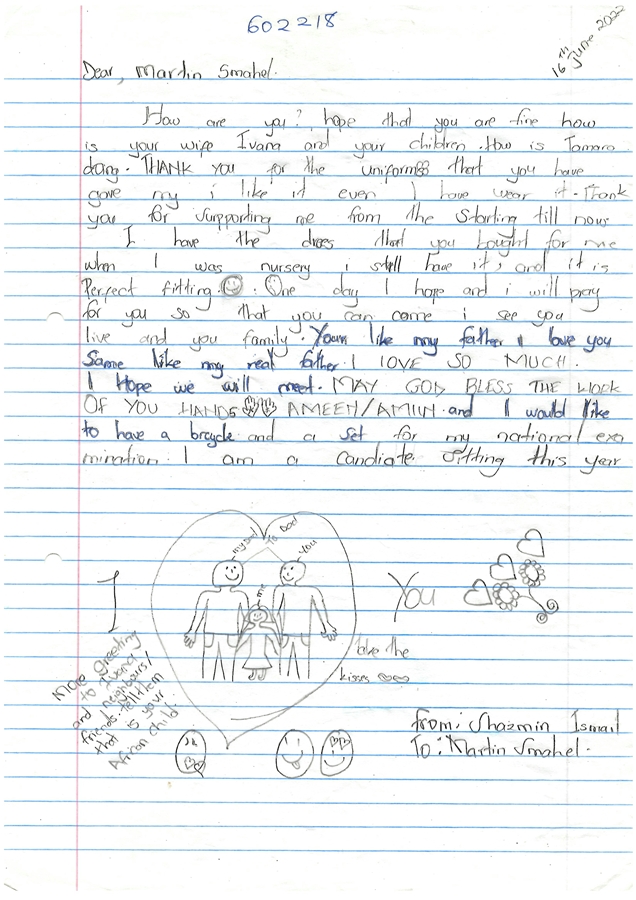 602218
16th June 2022
Dear, Martin Smahel.
How are you? hope that you are fine how
is your wife Ivana and your children. How is Tamara
doing. THANK YOU for the uniforms that you have
gave my i like it even I have wear it. Thank
you for supporting me from the starting till now
I have the dress that you bought for me
when I was nursery i still have it, and it is
Perfect fitting. One day I hope and i will pray
for you so that you can come i see you
live and you family. Youre like my father I love you
Same like my real father. I LOVE SO MUCH.
I Hope we will meet. MAY GOD BLESS THE WORK
OF YOU HANDS AMEEN/AMIIN. and I would like
to have a bicycle and a set for my national exa
mination. I am a candiate sitting this year
my Dad
To Dad
You
me
I
You
take the
kisses
More greeting
to Ivana
and neighbours/
friends. Tell them
that is your
African child.
from: Shazmin Ismail
To: Martin Smahel.